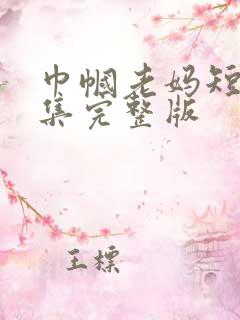 巾帼老妈短
集完整版
王标